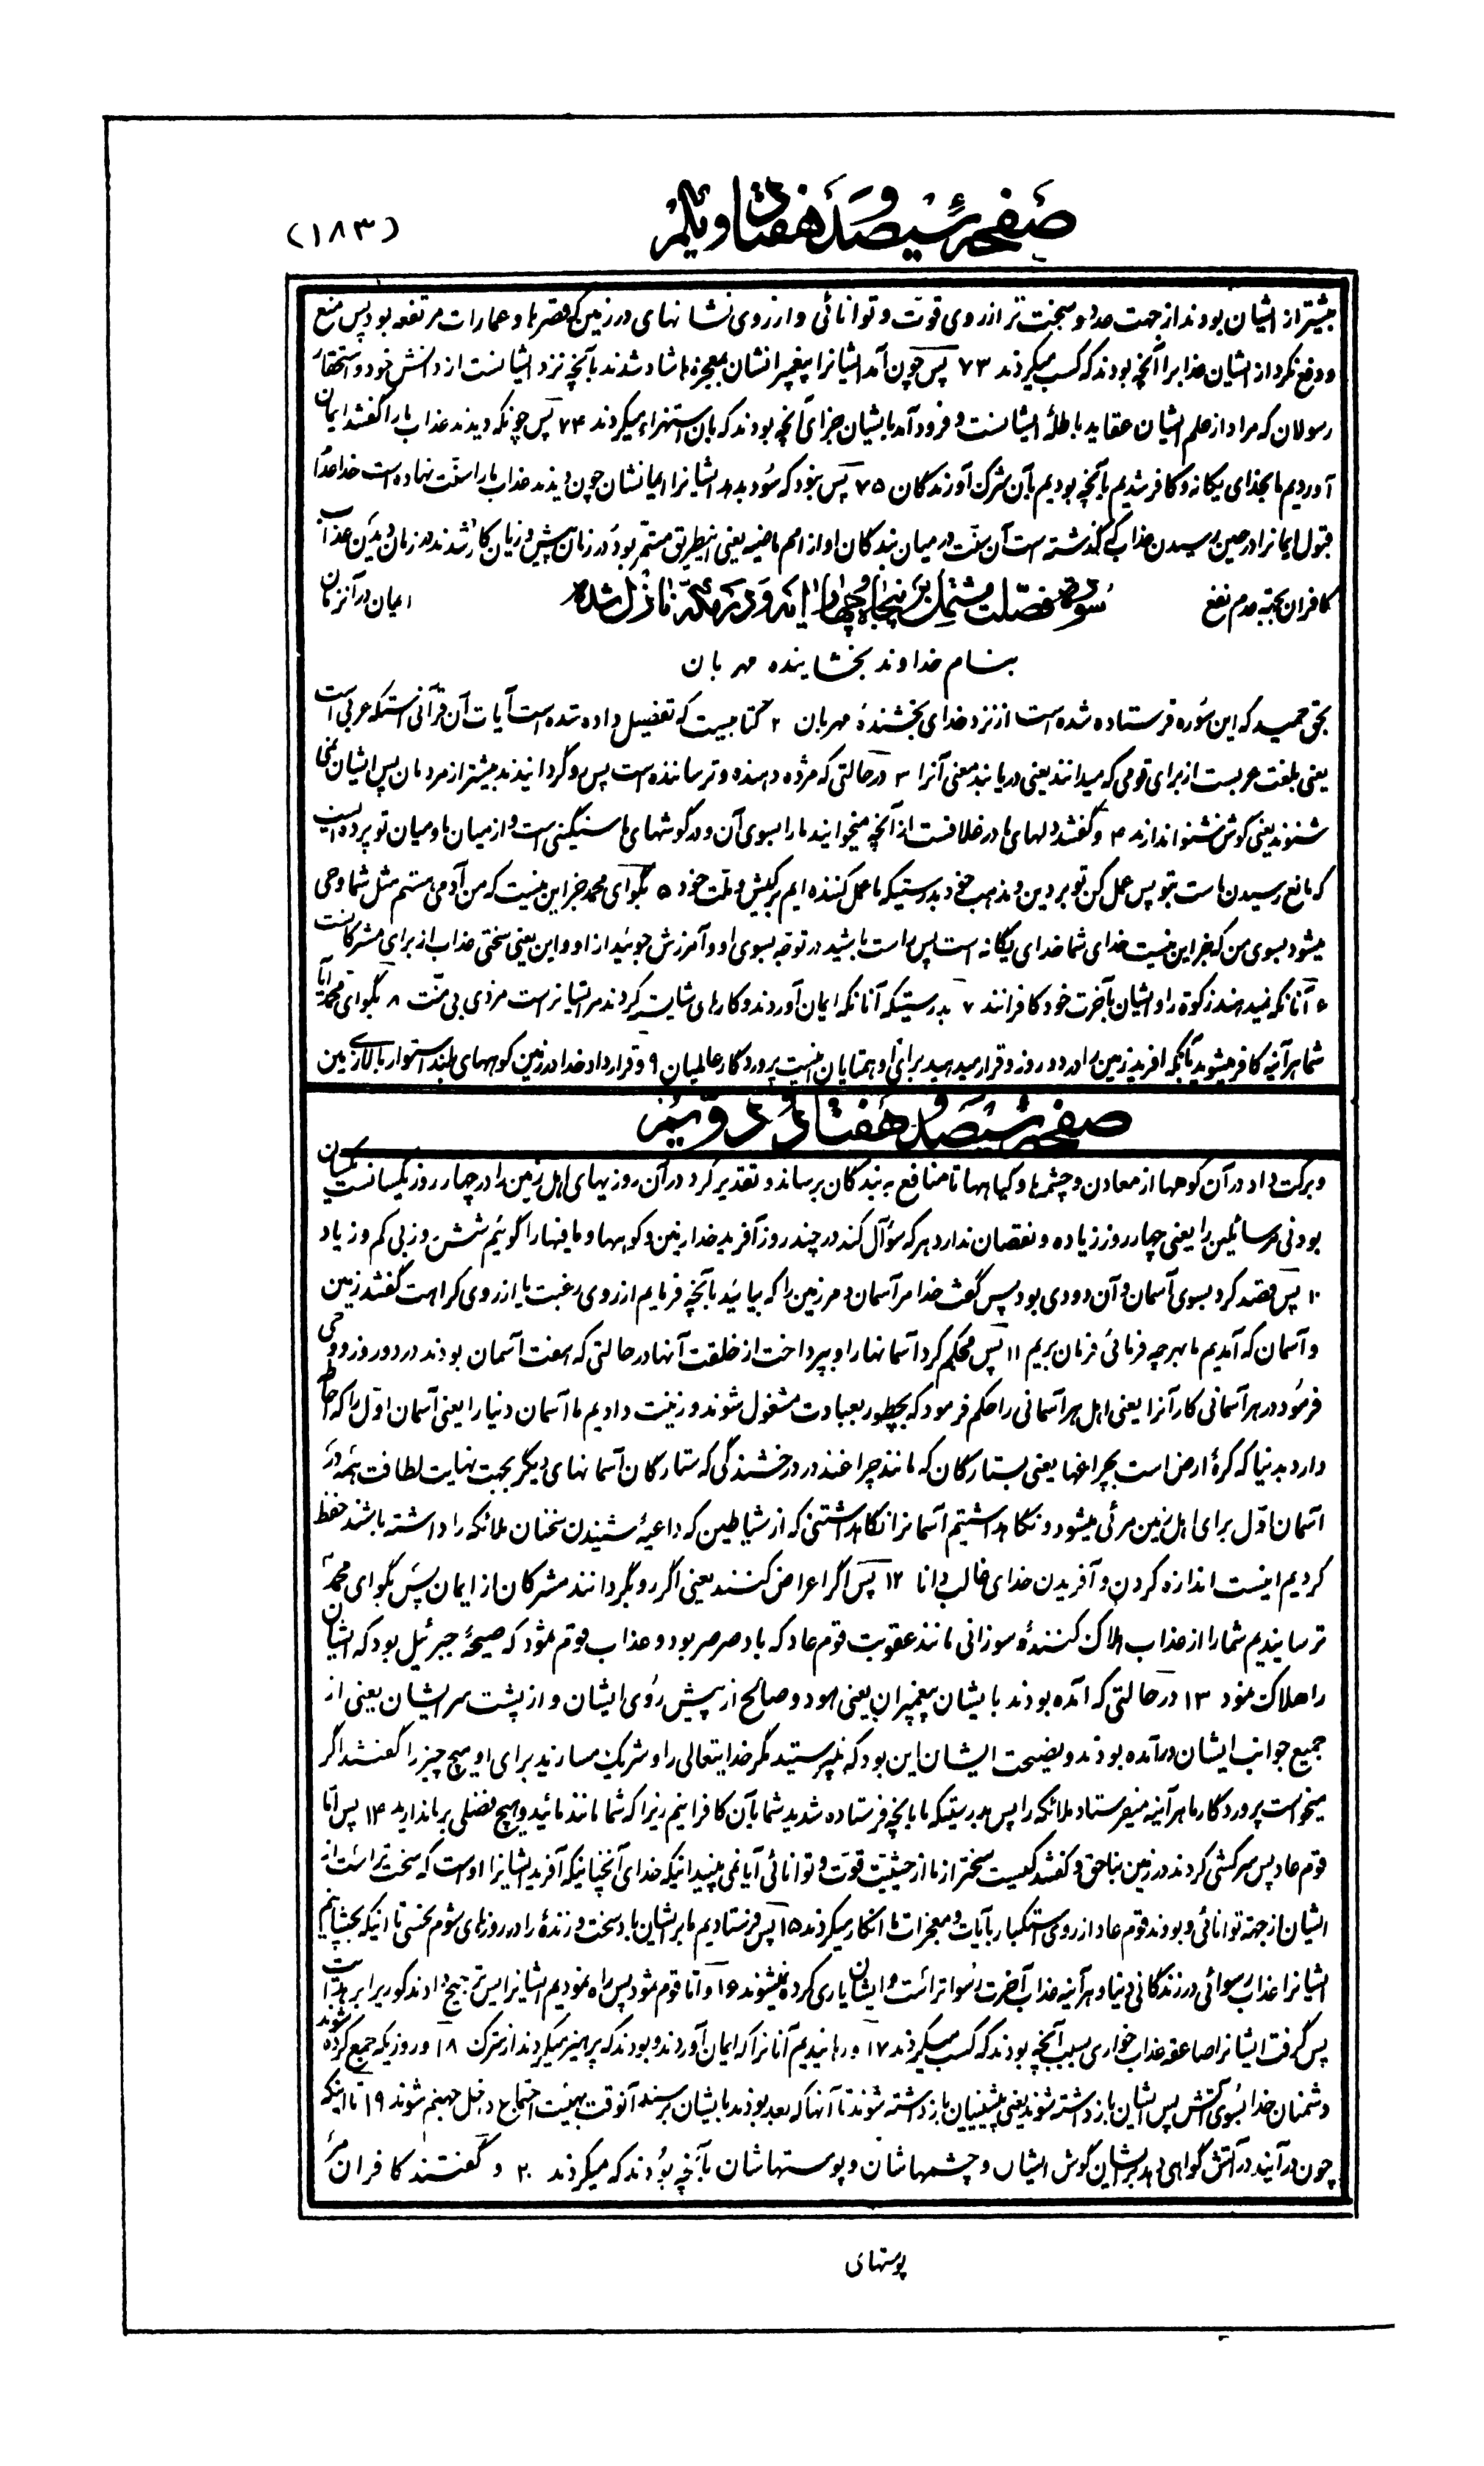 صفحهٔ سیصد و هفتاد و یکم
(۱۸۳)
بیشتر از ایشان بودند از جهت عدد و سخت‌تر از روی قوت و توانائی و از روی نشانهای در زمین که قصرها و عمارات مرتفعه بود پس منع
و دفع نکرد از ایشان عذابرا آنچه بودند که کسب میکردند ۷۳ پس چون آمد ایشانرا پیغمبرانشان بمعجزها شاد شدند بآنچه نزد ایشانست از دانش خود و استحقار
رسولان که مراد از علم ایشان عقاید باطلهٔ ایشانست و فرود آمد بایشان جزای آنچه بودند که بآن استهزاء میکردند ۷۴ پس چونکه دیدند عذاب ما را گفتند ایمان
آوردیم ما بخدای یگانه و کافر شدیم بآنچه بودیم بآن شرک آورندگان ۷۵ پس نبود که سود بدهد ایشانرا ایمانشان چون دیدند عذاب ما را سنت نهاده است خدا عدم
قبول ایمانرا در حین رسیدن عذاب که گذشته است آن سنت در میان بندگان او از امم ماضیه یعنی اینطریق مستمر بود در زمان پیش و زیان کار شدند در زمان دیدن عذاب
کافران بجهة عدم نفع ایمان در آنزمان
سورهٔ فصلت مشتمل بر پنجاه و چهار آیه و در مکه نازل شده
بنام خداوند بخشاینده مهربان
بحق حمید که این سوره فرستاده شده است از نزد خدای بخشندهٔ مهربان ۲ کتابیست که تفصیل داده شده است آیات آن قرآنی استکه عربی است
یعنی بلغت عربست از برای قومی که میدانند یعنی دریابند معنی آنرا ۳ در حالتی که مژده دهنده و ترساننده است پس رو گردانیدند بیشتر از مردمان پس ایشان نمی
شنوند یعنی گوش شنوا ندارند ۴ و گفتند دلهای ما در غلافست از آنچه میخوانید ما را بسوی آن و در گوشهای ما سنگینی است و از میان ما و میان تو پرده ایست
که مانع رسیدن ماست بتو پس عمل کن تو بر دین و مذهب خود بدرستیکه ما عمل کننده ایم بر کیش و ملت خود ۵ بگو ای محمد جز این نیست که من آدمی هستم مثل شما وحی
میشود بسوی من که جز این نیست خدای شما خدای یگانه است پس راست باشید در توجه بسوی او و آمرزش جوئید از او و این یعنی سختی عذاب از برای مشرکانست
۶ آنانکه نمیدهند زکوة را و ایشان بآخرت خود کافرانند ۷ بدرستیکه آنانکه ایمان آوردند و کارهای شایسته کردند مر ایشانراست مزدی بی منت ۸ بگو ای محمد آیا
شما هر آینه کافر میشوید بآنکه افرید زمین را در دو روز و قرار میدهید برای او همتایان اینست پروردگار عالمیان ۹ و قرار داد خدا در زمین کوههای بلند استوار بالای زمین
صفحهٔ سیصد و هفتاد و دویم
و برکت داد در آن کوهها از معادن و چشمها و گیاهها تا منافع به بندگان برساند و تقدیر کرد در آن روزیهای اهل زمین را در چهار روز یکسانست یکسان
بودنی مر سائلین را یعنی چهار روز زیاده و نقصان ندارد هر که سؤال کند در چند روز آفرید خدا زمین و کوهها و مافیها را گوئیم شش روز بی کم و زیاد
۱۰ پس قصد کرد بسوی آسمان و آن دودی بود پس گفت خدا مر آسمان و مر زمین را که بیائید بآنچه فرمایم از روی رغبت یا از روی کراهت گفتند زمین
و آسمان که آمدیم ما بهر چه فرمائی فرمان بریم ۱۱ پس محکم کرد آسمانها را و بپرداخت از خلقت آنها در حالتی که هفت آسمان بودند در دو روز و وحی
فرمود در هر آسمانی کار آنرا یعنی اهل هر آسمانی را حکم فرمود که بچطور بعبادت مشغول شوند و زینت دادیم ما آسمان دنیا را یعنی آسمان اول را که احاطه
دارد بدنیا که کرهٔ ارض است بچراغها یعنی بستارگان که مانند چراغند در درخشندگی که ستارگان آسمانهای دیگر بجهت نهایت لطافت همه در
آسمان اول برای اهل زمین مرئی میشود و نگاه داشتیم آسمانرا نگاه داشتنی که از شیاطین که داعیهٔ شنیدن سخنان ملائکه را داشته باشند حفظ
کردیم اینست اندازه کردن و آفریدن خدای غالب دانا ۱۲ پس اگر اعراض کنند یعنی اگر رو بگردانند مشرکان از ایمان پس بگو ای محمد
ترسانیدیم شما را از عذاب هلاک کنندهٔ سوزانی مانند عقوبت قوم عاد که باد صرصر بود و عذاب قوم ثمود که صیحهٔ جبرئیل بود که ایشان
را هلاک نمود ۱۳ در حالتی که آمده بودند بایشان پیغمبران یعنی هود و صالح از پیش روی ایشان و از پشت سر ایشان یعنی از
جمیع جوانب ایشان درآمده بودند و نصیحت ایشان این بود که نپرستید مگر خدایتعالی را و شریک مسازید برای او هیچ چیز را گفتند اگر
میخواست پروردگار ما هر آینه میفرستاد ملائکه را پس بدرستیکه ما بآنچه فرستاده شدید شما بآن کافرانیم زیرا که شما مانند مائید و هیچ فضلی بر ما ندارید ۱۴ پس اما
قوم عاد پس سرکشی کردند در زمین بناحق و گفتند کیست سختر از ما از حیثیت قوت و توانائی آیا نمی بینید اینکه خدای آنچنانیکه آفرید ایشانرا اوست که سخت تر است از
ایشان از جهة توانائی و بودند قوم عاد از روی استکبار بآیات و معجزات ما انکار میکردند ۱۵ پس فرستادیم ما بر ایشان باد سخت وزندهٔ را در روزهای شوم نحسی تا اینکه بچشانیم
ایشانرا عذاب رسوائی در زندگانی دنیا و هر آینه عذاب آخرت رسوا تر است و ایشان یاری کرده نمیشوند ۱۶ و اما قوم ثمود پس راه نمودیم ایشانرا پس ترجیح دادند کوریرا بر هدایت
پس گرفت ایشانرا صاعقه عذاب خواری بسبب آنچه بودند که کسب میکردند ۱۷ و رهانیدیم آنانرا که ایمان آوردند و بودند که پرهیز میکردند از شرک ۱۸ و روزیکه جمع کرده شوند
دشمنان خدا بسوی آتش پس ایشان بازداشته شوند یعنی پیشینیان بازداشته شوند تا آنها که بعد بودند بایشان برسند آنوقت بهیئت اجتماع داخل جهنم شوند ۱۹ تا اینکه
چون در آیند در آتش گواهی دهد بر ایشان گوش ایشان و چشمهاشان و پوستهاشان بآنچه بودند که میکردند ۲۰ و گفتند کافران مر
پوستهای